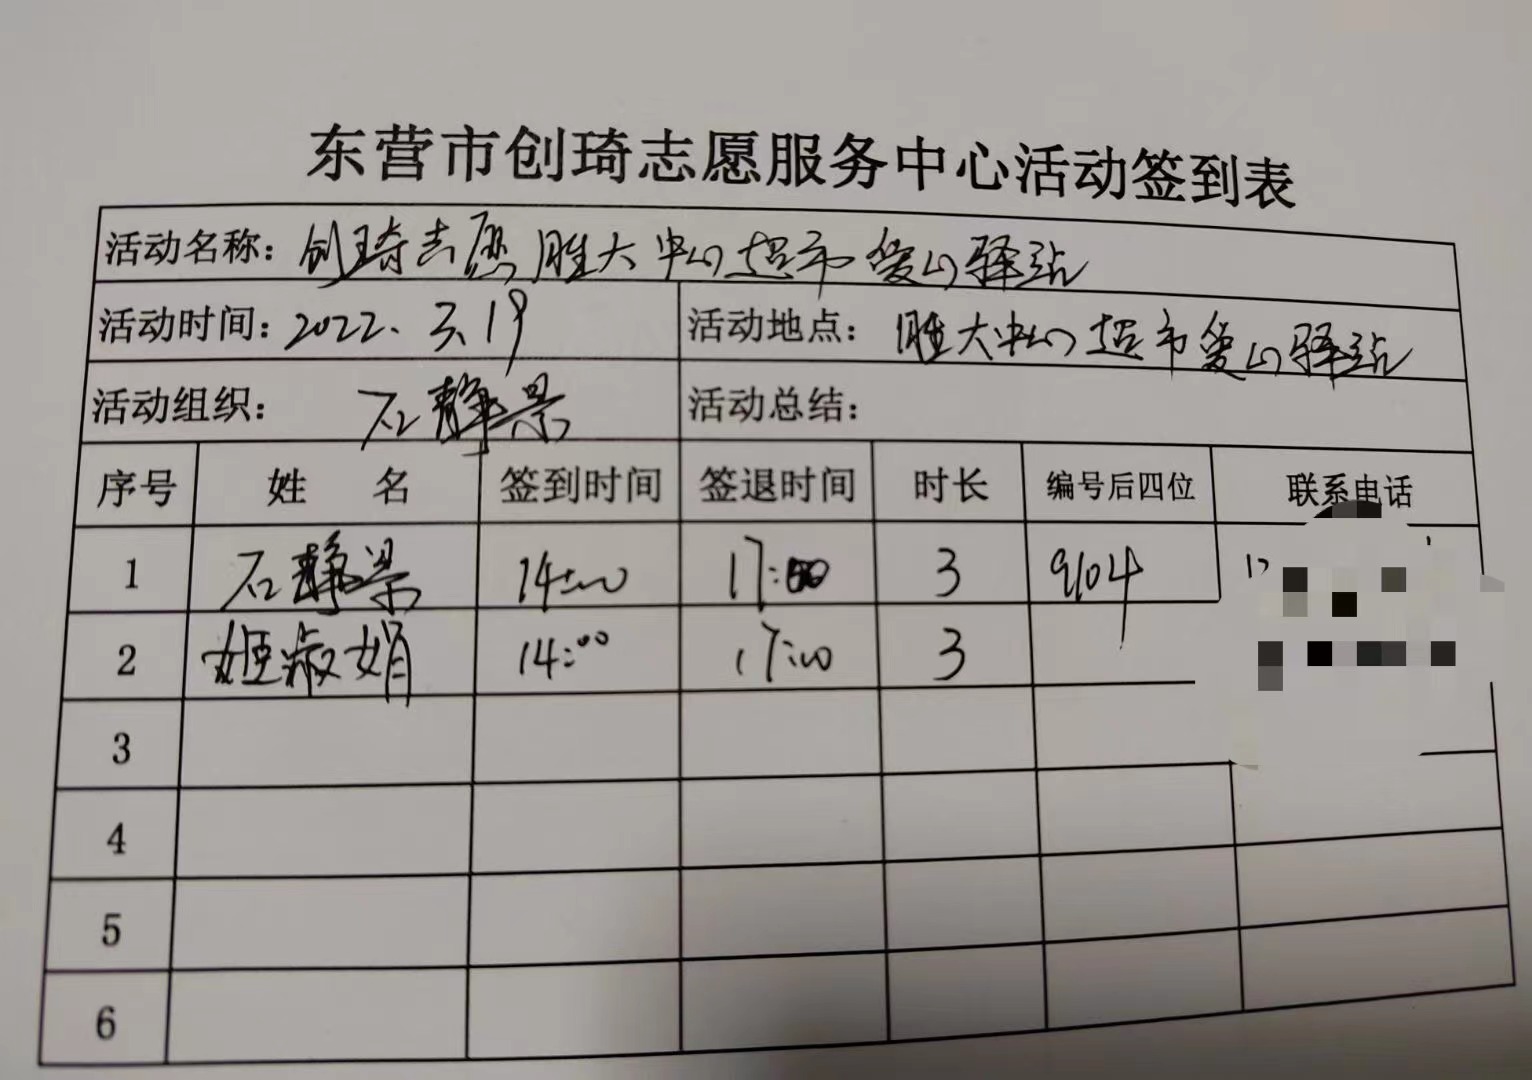 东营市创琦志愿服务中心活动签到表
活动名称：创琦志愿胜大中心超市爱心驿站
活动时间：2022.3.19 活动地点：胜大中心超市爱心驿站
活动组织：石静景 活动总结：
序号 姓 名 签到时间 签退时间 时长 编号后四位 联系电话
1 石静景 14:00 17:00 3 9104
2 姬淑娟 14:00 17:00 3
3
4
5
6